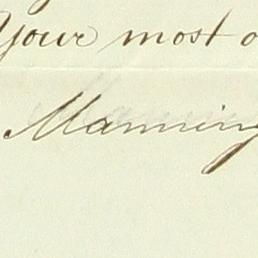 Your most o
Manning